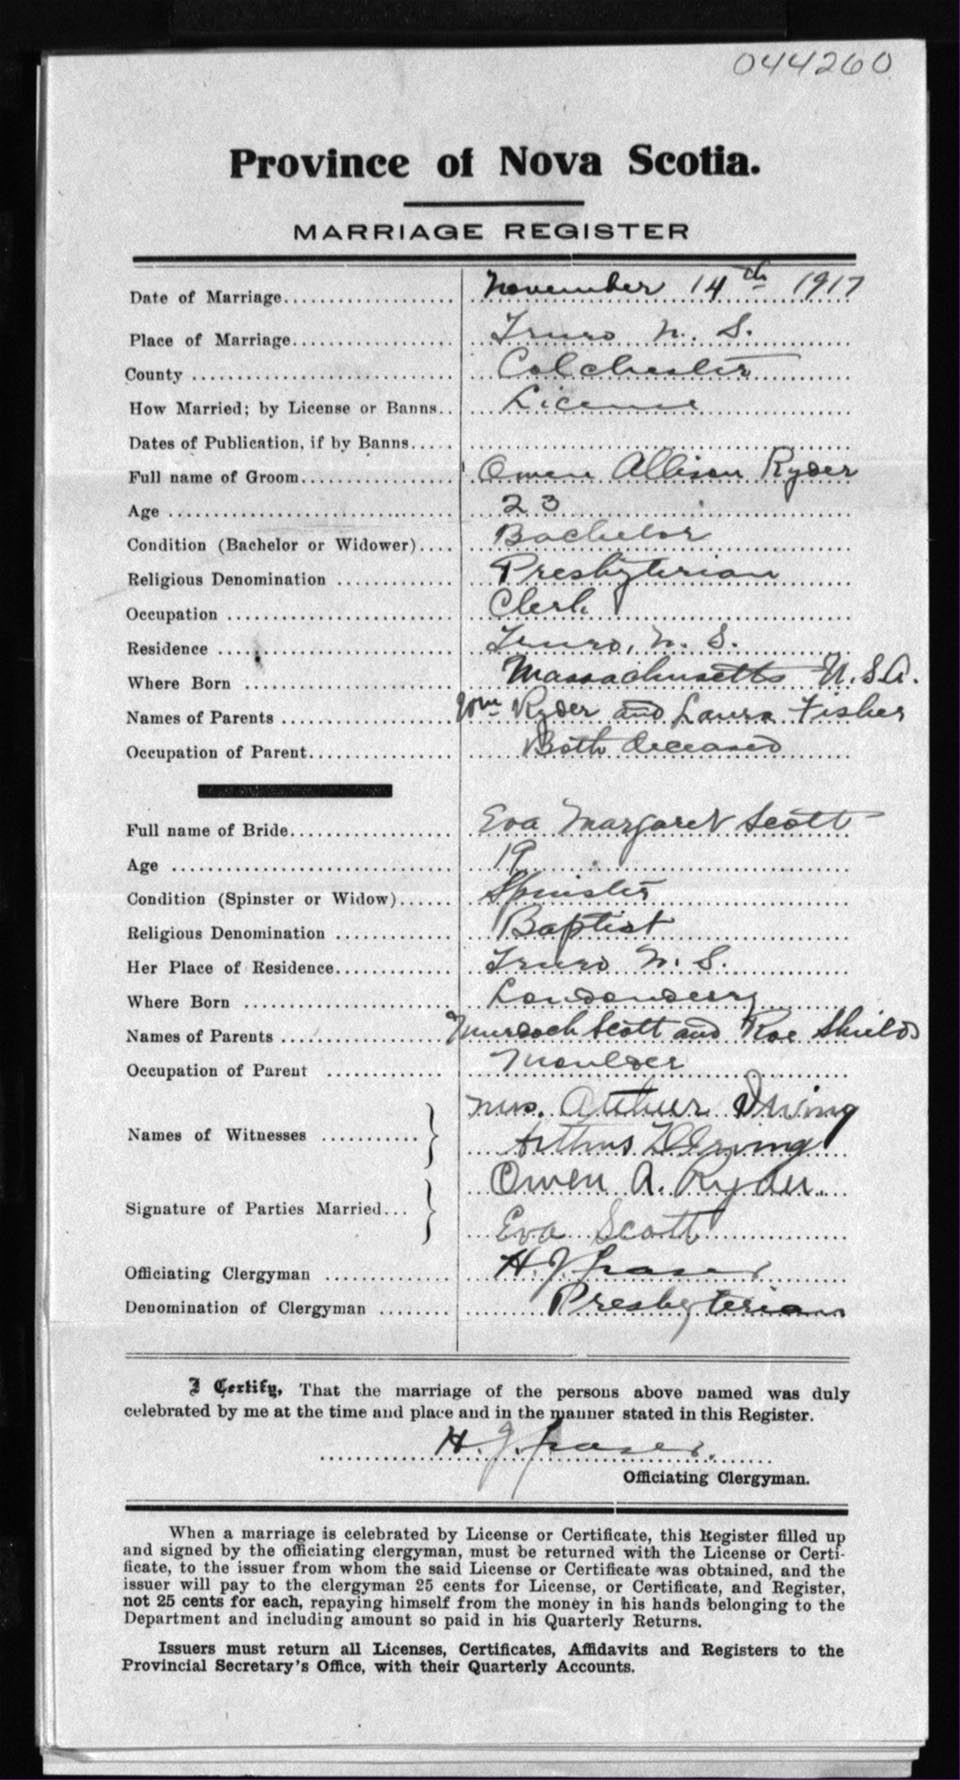 044260
Province of Nova Scotia.
MARRIAGE REGISTER
Date of Marriage................... November 14th 1917
Place of Marriage.................. Truro N. S.
County ............................. Colchester
How Married; by License or Banns.. License
Dates of Publication, if by Banns.....
Full name of Groom................. Owen Allison Ryder
Age ................................ 23
Condition (Bachelor or Widower).... Bachelor
Religious Denomination ............ Presbyterian
Occupation ......................... Clerk
Residence .......................... Truro, N. S.
Where Born ........................ Massachusetts U.S.A.
Names of Parents .................. Wm Ryder and Laura Fisher
Occupation of Parent............... Both deceased
Full name of Bride................. Eva Margaret Scott
Age ................................ 19
Condition (Spinster or Widow)...... Spinster
Religious Denomination ............ Baptist
Her Place of Residence............. Truro N. S.
Where Born ........................ Londonderry
Names of Parents .................. Murdoch Scott and Roe Shields
Occupation of Parent ............. Moulder
Mrs. Arthur Irving
Names of Witnesses ........... } Arthur Irving
Owen A. Ryder.
Signature of Parties Married... }
Eva Scott
Officiating Clergyman ............. H. J. Fraser
Denomination of Clergyman ........ Presbyterian
I Certify, That the marriage of the persons above named was duly
celebrated by me at the time and place and in the manner stated in this Register.
H. J. Fraser.
Officiating Clergyman.
When a marriage is celebrated by License or Certificate, this Register filled up
and signed by the officiating clergyman, must be returned with the License or Certi-
ficate, to the issuer from whom the said License or Certificate was obtained, and the
issuer will pay to the clergyman 25 cents for License, or Certificate, and Register,
not 25 cents for each, repaying himself from the money in his hands belonging to the
Department and including amount so paid in his Quarterly Returns.
Issuers must return all Licenses, Certificates, Affidavits and Registers to the
Provincial Secretary's Office, with their Quarterly Accounts.